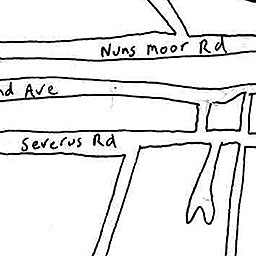 Nuns Moor Rd
nd Ave
Severus Rd